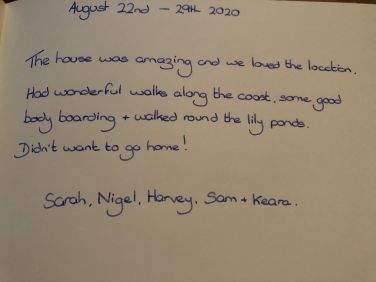 August 22nd - 29th 2020
The house was amazing and we loved the location.
Had wonderful walks along the coast, some good
body boarding + walked round the lily ponds.
Didn't want to go home!
Sarah, Nigel, Harvey, Sam + Keara.